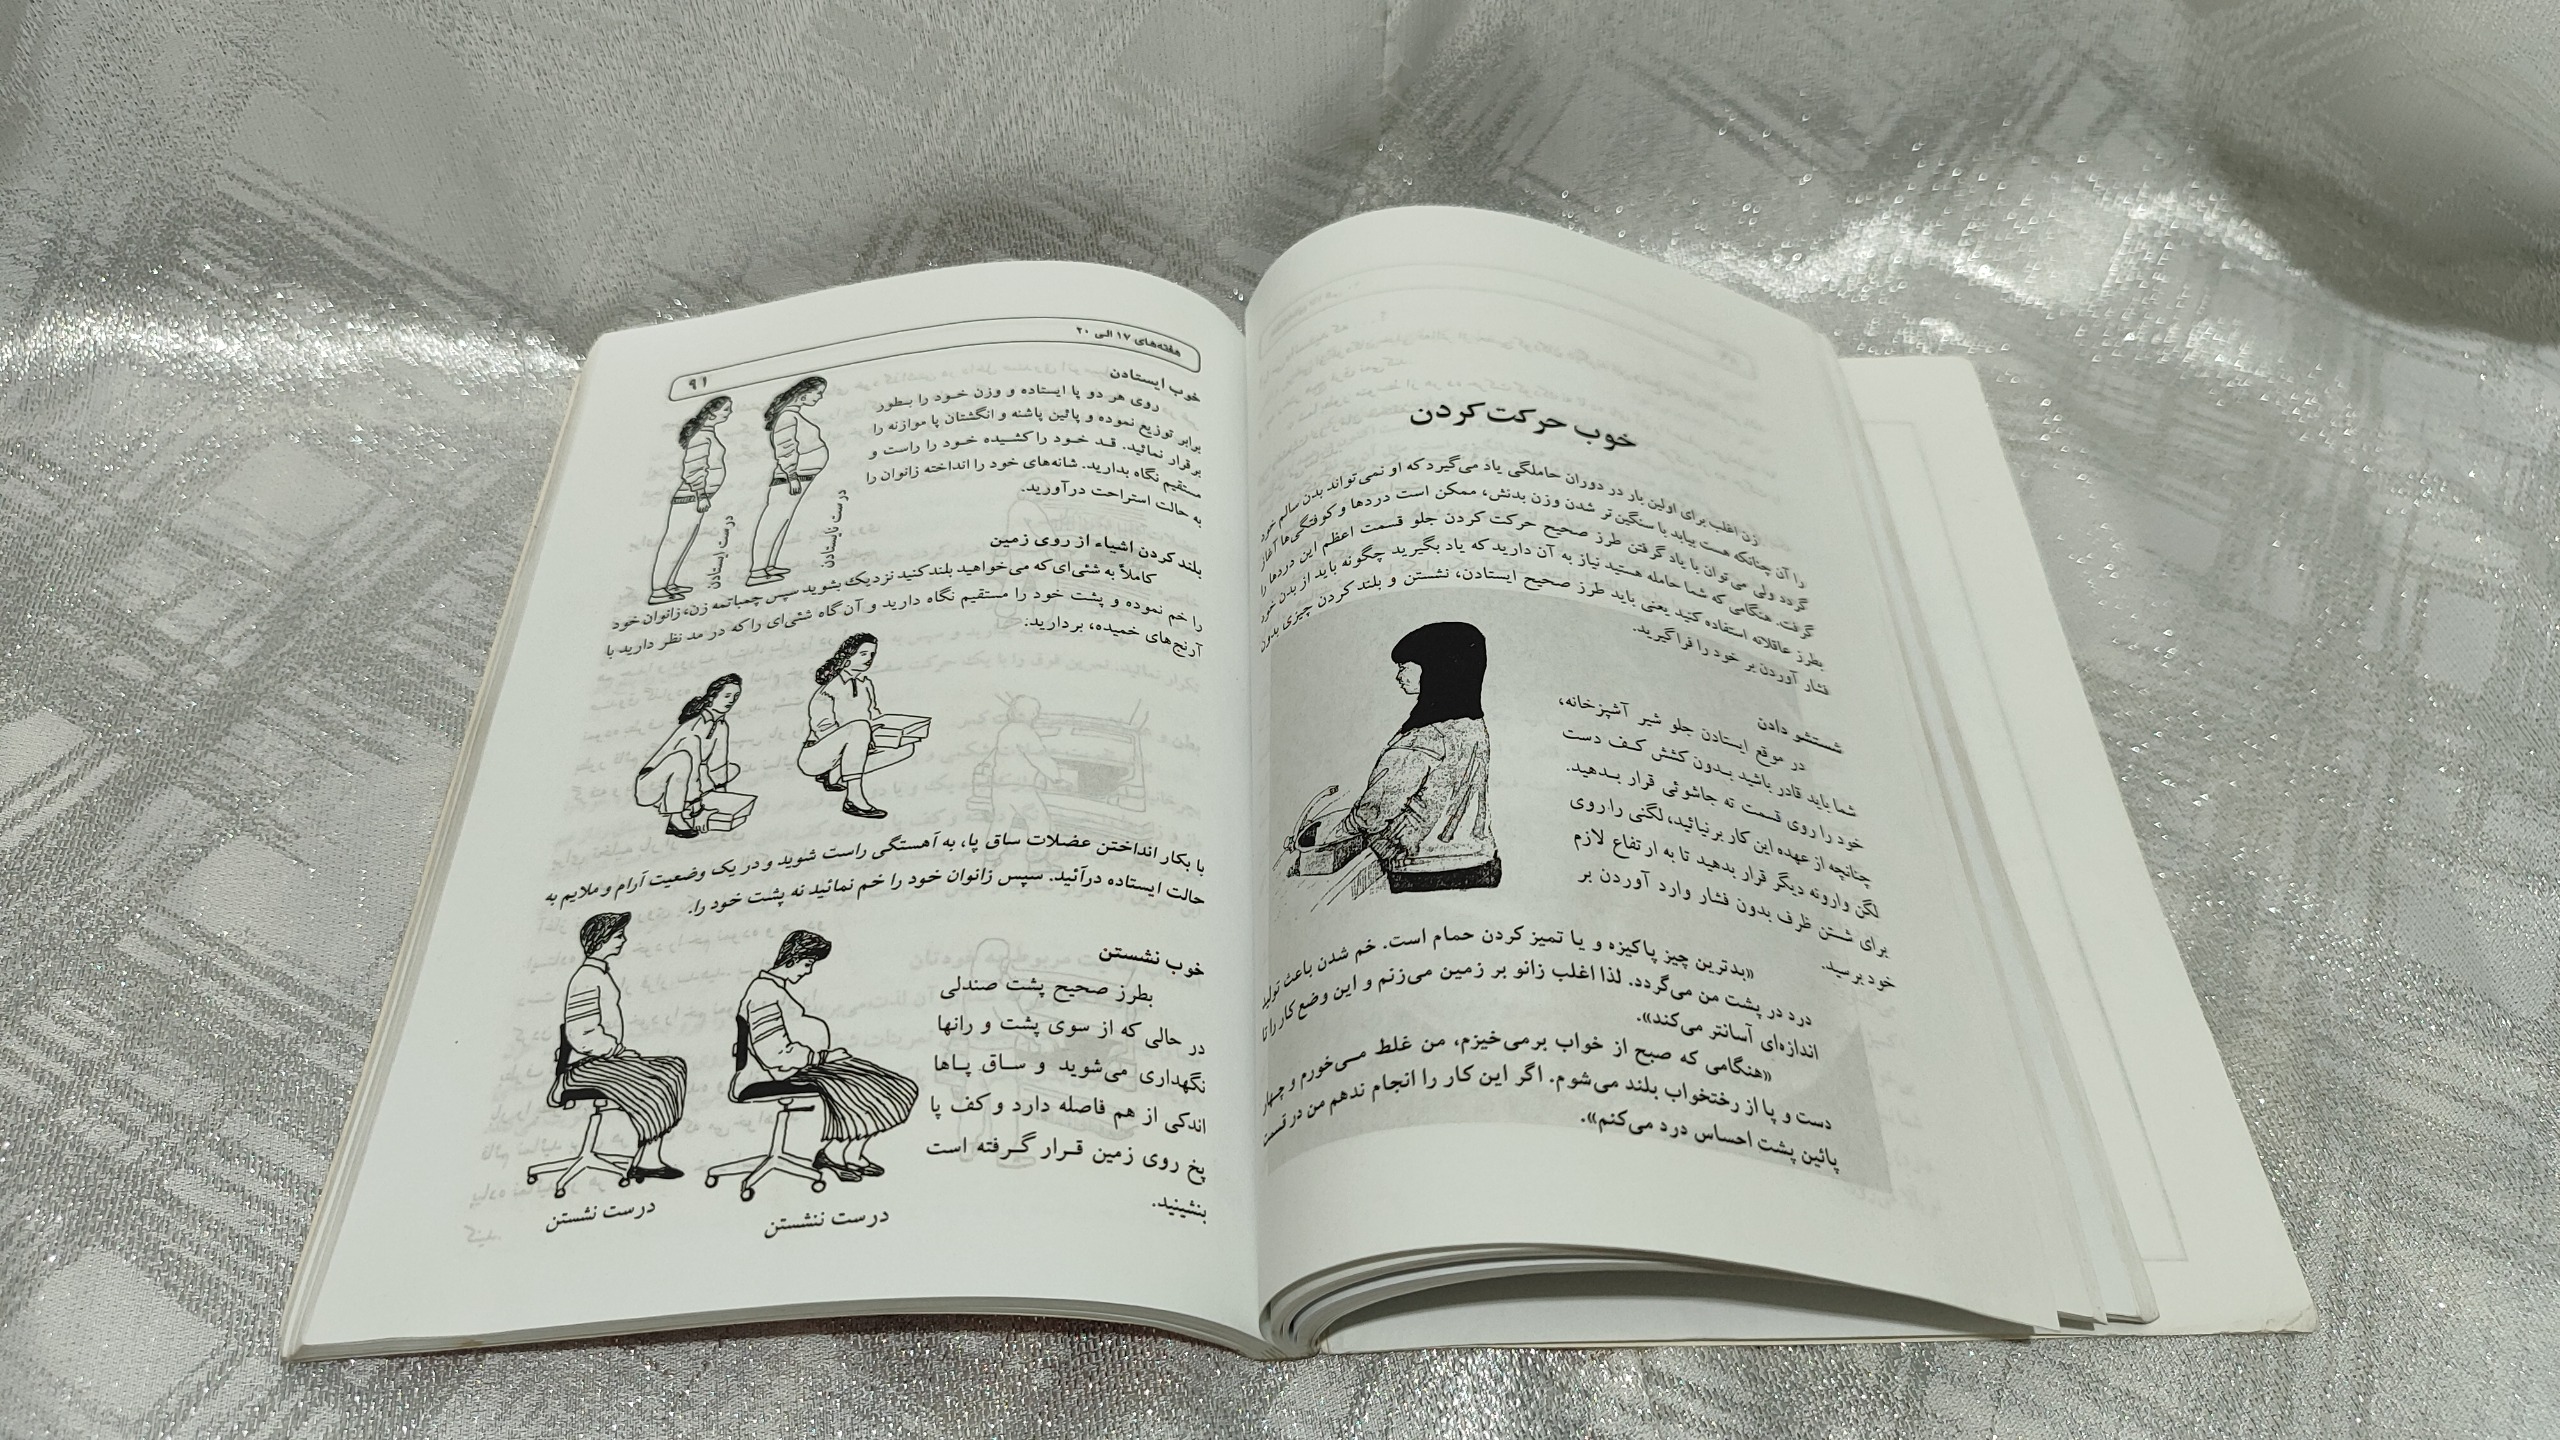 خوب حرکت کردن
زن اغلب برای اولین بار در دوران حاملگی یاد می‌گیرد که او نمی‌تواند بدن سالم خود
را آن چنانکه هست بیابد با سنگین‌تر شدن وزن بدنش، ممکن است دردها و کوفتگی‌ها آغاز
گردد ولی می‌توان با یاد گرفتن طرز صحیح حرکت کردن جلو قسمت اعظم این دردها را
گرفت. هنگامی که شما حامله هستید نیاز به آن دارید که یاد بگیرید چگونه باید از بدن خود
بطرز عاقلانه استفاده کنید یعنی باید طرز صحیح ایستادن، نشستن و بلند کردن چیزی بدون
فشار آوردن بر خود را فراگیرید.
شستشو دادن
در موقع ایستادن جلو شیر آشپزخانه،
شما باید قادر باشید بدون کشش کف دست
خود را روی قسمت ته جاشوئی قرار بدهید.
چنانچه از عهده این کار برنیائید، لگنی را روی
لگن وارونه دیگر قرار بدهید تا به ارتفاع لازم
برای شستن ظرف بدون فشار وارد آوردن بر
خود برسید.
«بدترین چیز پاکیزه و یا تمیز کردن حمام است. خم شدن باعث تولید
درد در پشت من می‌گردد. لذا اغلب زانو بر زمین می‌زنم و این وضع کار را تا
اندازه‌ای آسانتر می‌کند».
«هنگامی که صبح از خواب برمی‌خیزم، من غلط می‌خورم و چهار
دست و پا از رختخواب بلند می‌شوم. اگر این کار را انجام ندهم من در قسمت
پائین پشت احساس درد می‌کنم».
هفته‌های ۱۷ الی ۲۰
۹۱
خوب ایستادن
روی هر دو پا ایستاده و وزن خود را بطور
برابر توزیع نموده و پائین پاشنه و انگشتان پا موازنه را
برقرار نمائید. قد خود را کشیده خود را راست و
مستقیم نگاه بدارید. شانه‌های خود را انداخته زانوان را
به حالت استراحت درآورید.
درست ایستادن
درست نایستادن
بلند کردن اشیاء از روی زمین
کاملاً به شئی‌ای که می‌خواهید بلند کنید نزدیک بشوید سپس چمباتمه زن، زانوان خود
را خم نموده و پشت خود را مستقیم نگاه دارید و آن گاه شئی‌ای را که در مد نظر دارید با
آرنج‌های خمیده، بردارید.
با بکار انداختن عضلات ساق پا، به آهستگی راست شوید و در یک وضعیت آرام و ملایم به
حالت ایستاده درآئید. سپس زانوان خود را خم نمائید نه پشت خود را.
خوب نشستن
بطرز صحیح پشت صندلی
در حالی که از سوی پشت و رانها
نگهداری می‌شوید و ساق پاها
اندکی از هم فاصله دارد و کف پا
پخ روی زمین قرار گرفته است
بنشینید.
درست نشستن
درست ننشستن